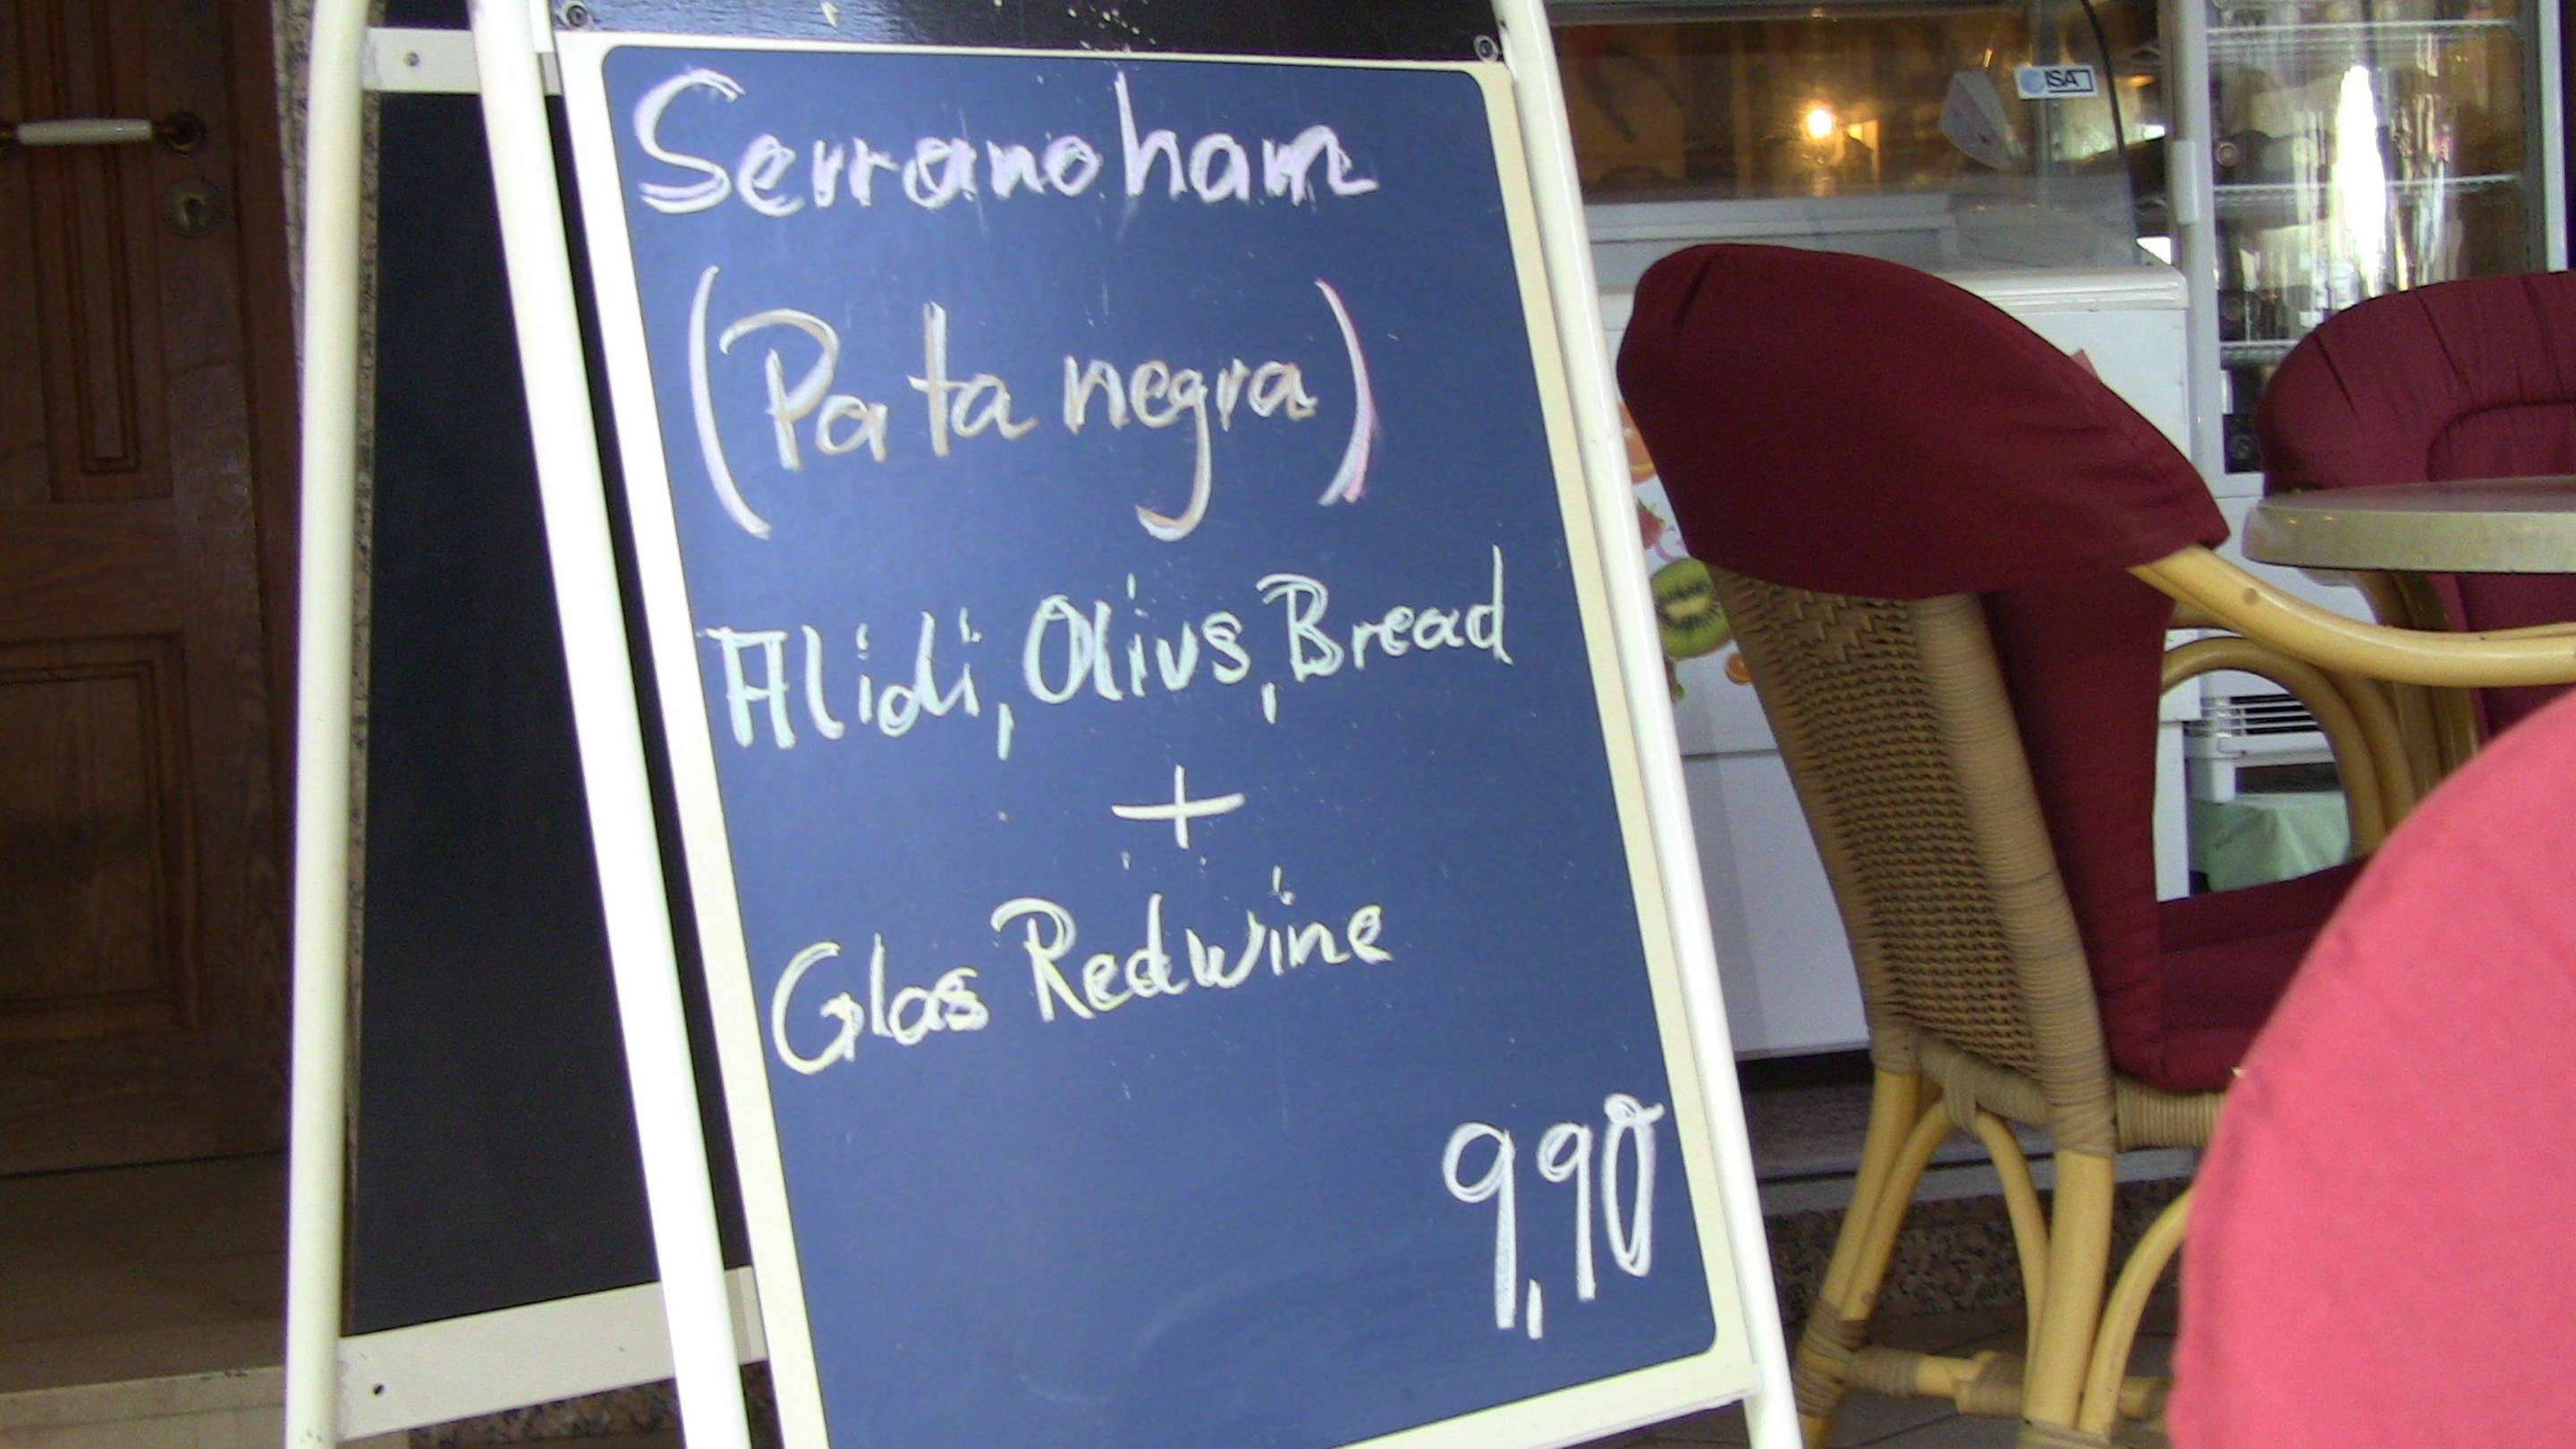 Serranoham
(Pata negra)
Alidi, Olivs, Bread
+
Glas Redwine
9,90
ISA